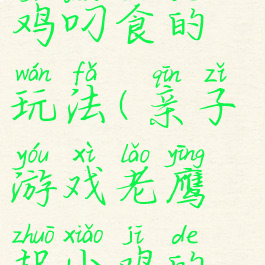 鸡叨食的
wán fǎ qīn zǐ
玩法(亲子
yóu xì lǎo yīng
游戏老鹰
zhuō xiǎo jī de
小鸡的